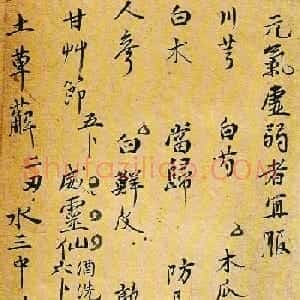 元氣虛弱者宜服
川芎 白芍 木瓜
白术 當歸 防
人參 白鮮皮
甘艸節 五卜 威靈仙 酒洗 六卜
土萆薢 二刄 水三中
shufaziliao.COM